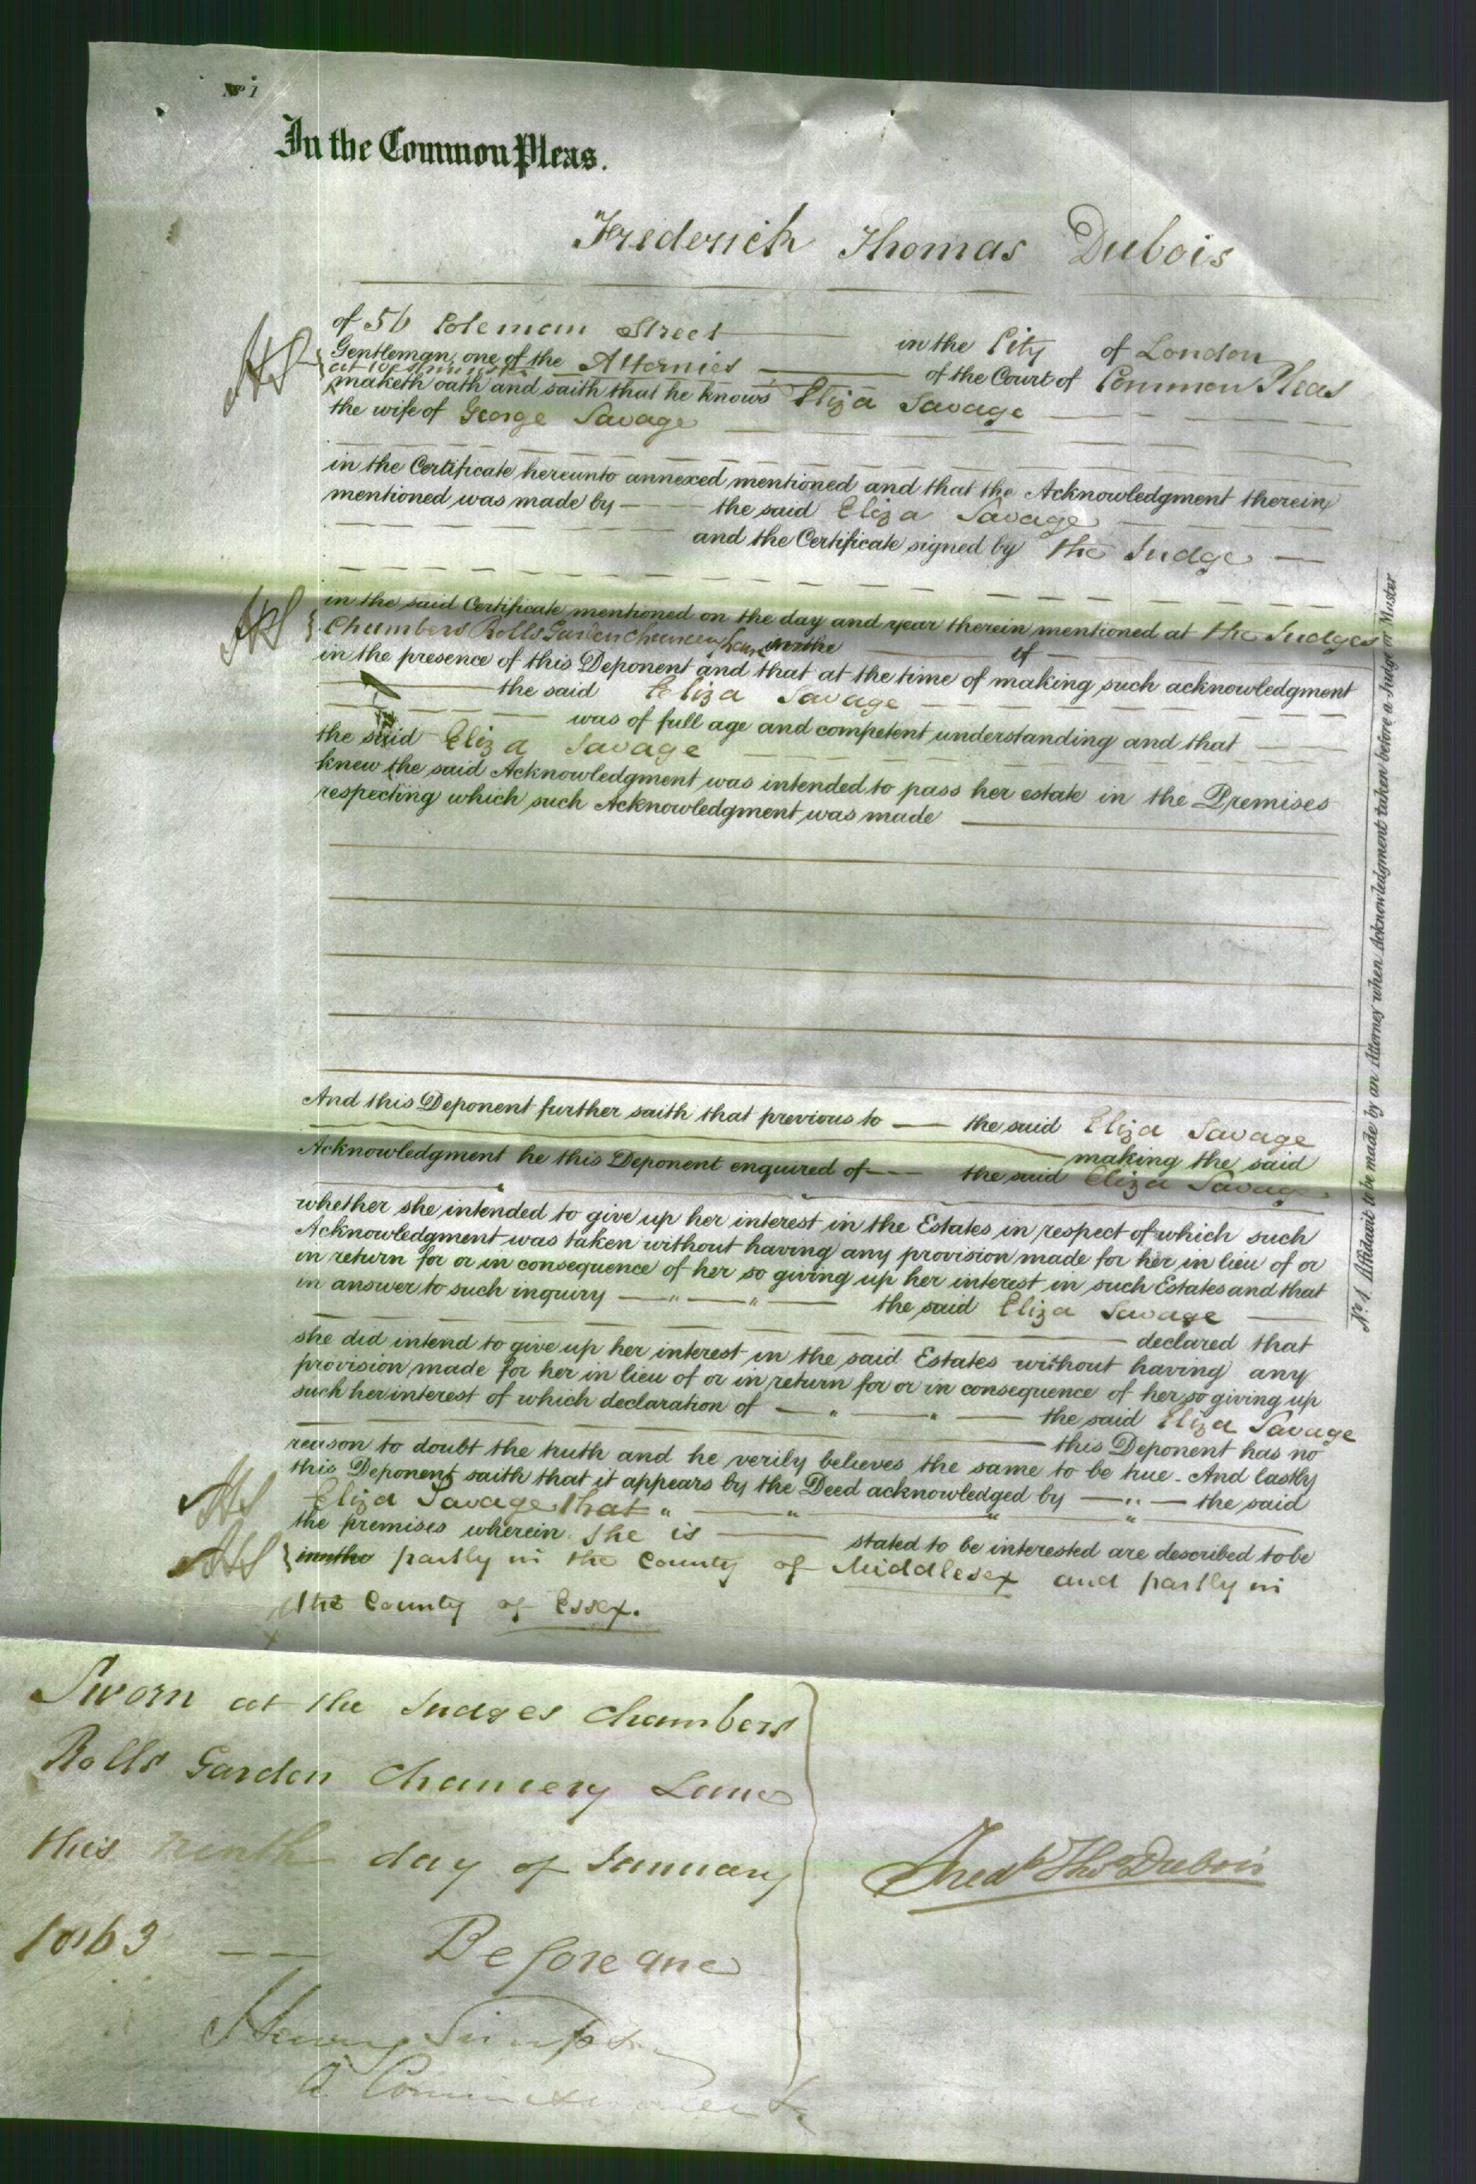 No 1
In the Common Pleas.
Frederick Thomas Dubois
of 56 Coleman Street in the City of London
Gentleman, one of the Attornies of the Court of Common Pleas
at Westminster
maketh oath and saith that he knows Eliza Savage
the wife of George Savage
in the Certificate hereunto annexed mentioned and that the Acknowledgment therein
mentioned was made by the said Eliza Savage
and the Certificate signed by the Judge
in the said Certificate mentioned on the day and year therein mentioned at the Judges
Chambers Rolls Garden Chancery Lane in the of
in the presence of this Deponent and that at the time of making such acknowledgment
the said Eliza Savage
was of full age and competent understanding and that
the said Eliza Savage
knew the said Acknowledgment was intended to pass her estate in the Premises
respecting which such Acknowledgment was made
And this Deponent further saith that previous to the said Eliza Savage
making the said
Acknowledgment he this Deponent enquired of the said Eliza Savage
whether she intended to give up her interest in the Estates in respect of which such
Acknowledgment was taken without having any provision made for her in lieu of or
in return for or in consequence of her so giving up her interest in such Estates and that
in answer to such inquiry the said Eliza Savage
declared that
she did intend to give up her interest in the said Estates without having any
provision made for her in lieu of or in return for or in consequence of her so giving up
such her interest of which declaration of the said Eliza Savage
this Deponent has no
reason to doubt the truth and he verily believes the same to be true. And lastly
this Deponent saith that it appears by the Deed acknowledged by the said
Eliza Savage that
the premises wherein she is stated to be interested are described to be
in the partly in the County of Middlesex and partly in
the County of Essex.
Sworn at the Judges Chambers
Rolls Garden Chancery Lane
this ninth day of January
1863 Before me
Henry Simpson
A Commissioner &c.
Fredk Thos Dubois
No. 1. Affidavit to be made by an Attorney when Acknowledgment taken before a Judge or Master